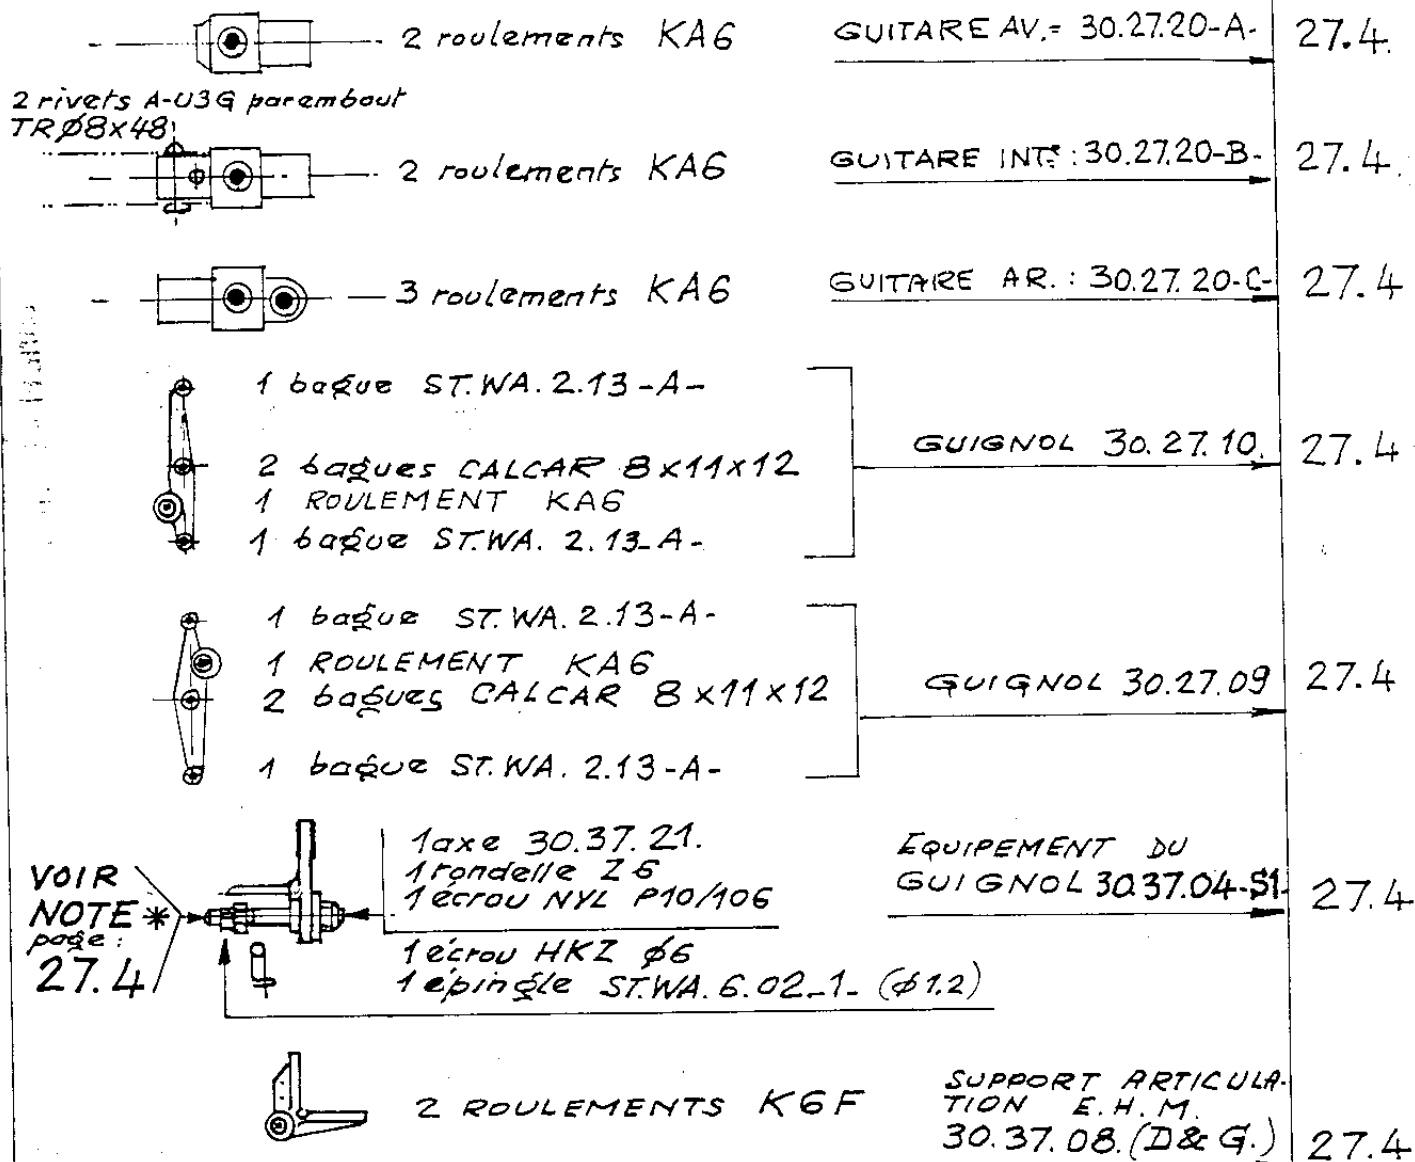 2 roulements KA6 GUITARE AV.= 30.27.20-A- 27.4.
2 rivets A-U3G parembout
TRØ8x48
2 roulements KA6 GUITARE INT.: 30.27.20-B- 27.4.
3 roulements KA6 GUITARE AR.: 30.27.20-C- 27.4
1 bague ST.WA.2.13-A-
2 bagues CALCAR 8x11x12 GUIGNOL 30.27.10. 27.4
1 ROULEMENT KA6
1 bague ST.WA. 2.13-A-
1 bague ST.WA. 2.13-A-
1 ROULEMENT KA6
2 bagues CALCAR 8x11x12 GUIGNOL 30.27.09 27.4
1 bague ST.WA. 2.13-A-
VOIR
NOTE *
page:
27.4
1 axe 30.37.21.
1 rondelle Z6
1 écrou NYL P10/106
1 écrou HKZ ø6
1 épingle ST.WA.6.02-1- (ø1.2)
EQUIPEMENT DU
GUIGNOL 30.37.04-S1- 27.4
2 ROULEMENTS K6F
SUPPORT ARTICULA-
TION E.H.M.
30.37.08.(D & G.) 27.4